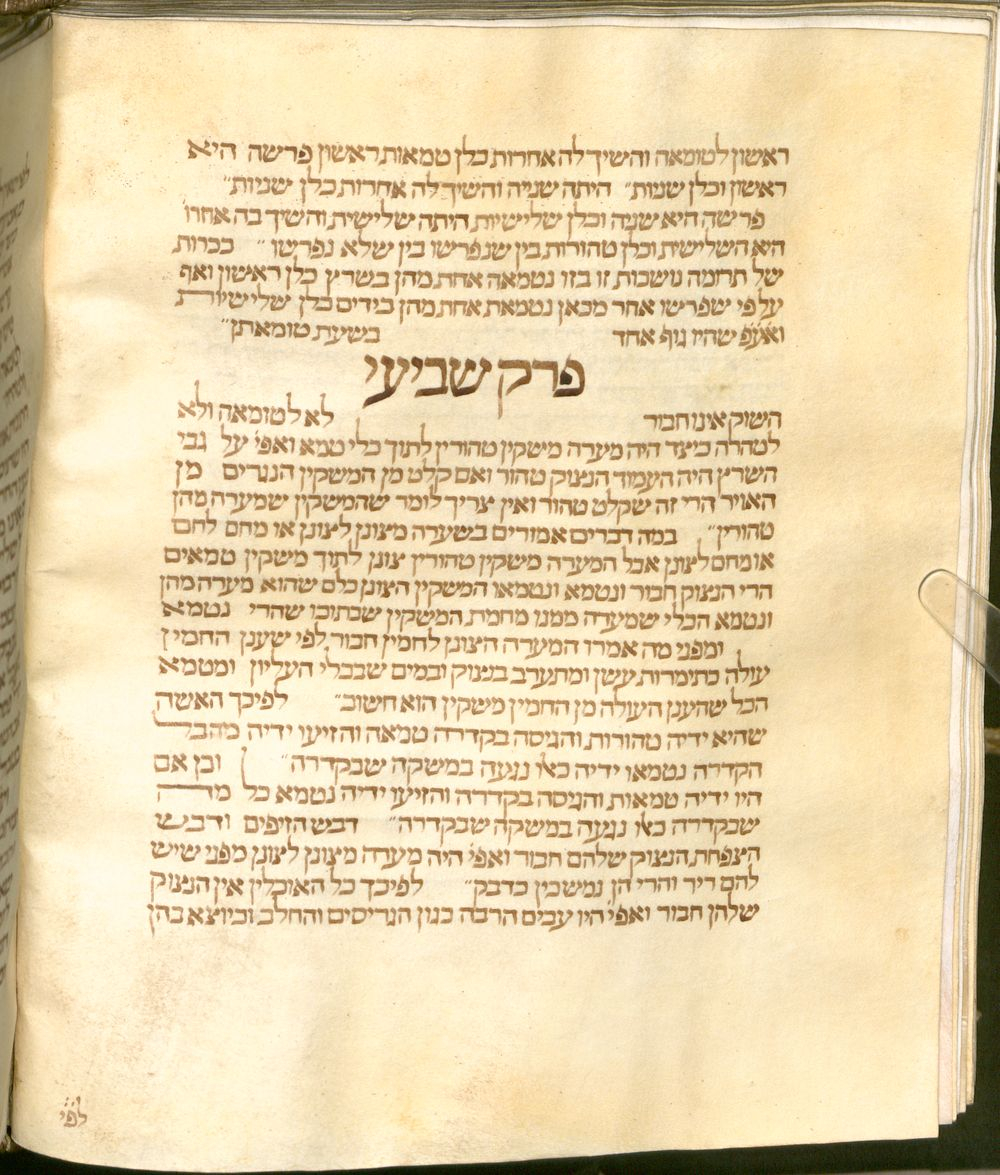 ראשון לטומאה והשיך לה אחרות כלן טמאות ראשון פרשה היא
ראשון וכלן שניות״ היתה שניה והשיך לה אחרות כלן שניות״
פרשה היא שניה וכלן שלישיות היתה שלישית והשיך בה אחרו
היא השלישית וכלן טהורות בין שנפרשו בין שלא נפרשו״ ככרות
של תרומה נושכות זו בזו נטמאה אחת מהן בשרץ כלן ראישון ואף
על פי שפרשו אחר מכאן נטמאת אחת מהן בידים כלן שלישיות
ואעפ שהיו גוף אחד בשעת טומאתן״
פרק שביעי
השוק אינו חבור לא לטומאה ולא
לטהרה כיצד היה מערה מישקין טהורין לתוך כלי טמא ואפי׳ על גבי
השרץ היה העמוד הנצוק טהור ואם קלט מן המשקין הנגרים מן
האויר הרי זה שקלט טהור ואין צריך לומר שהמשקין שמערה מהן
טהורין״ במה דברים אמורים בשערה מצונן לצונן או מחם לחם
או מחם לצונן אבל המערה משקין טהורין צונן לתוך משקין טמאים
הרי הנצוק חבור ונטמא ונטמאו המשקין הצונן כלם שהוא מערה מהן
ונטמא הכלי שמערה ממנו מחמת המשקין שבתוכו שהרי נטמא
ומפני מה אמרו המערה הצונן לחמין חבור לפי שענן החמין
עולה כתימרות עשן ומתערב בנצוק ובמים שבכלי העליון ומטמא
הכל שהענן העולה מן החמין משקין הוא חישוב״ לפיכך האשה
שהיא ידיה טהורות והגיסה בקדרה טמאה והזיעו ידיה מהבל
הקדרה נטמאו ידיה כאו נגעה במשקה שבקדרה״ וכן אם
היו ידיה טמאות והגיסה בקדרה והזיעו ידיה נטמא כל מה
שבקדרה כאו נגעה במשקה שבקדרה״ דבש הזיפים ודבש
הצפחת הנצוק שלהם חבור ואפי׳ היה מערה מצונן לצונן מפני שיש
להם ריר והרי הן נמשכין כדבק״ לפיכך כל האוכלין אין הנצוק
שלהן חבור ואפי׳ היו עבים הרבה כגון הגריסים והחלב וכיוצא בהן
לפי